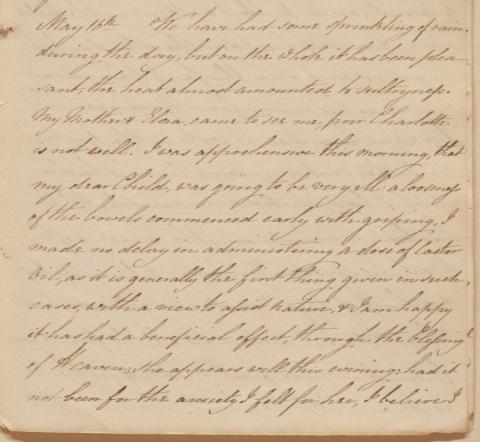 May 16th We have had some sprinkling of rain,
during the day, but on the whole it has been plea-
sant; the heat almost amounted to sultryness.
My Mother & Eliza, came to see me, poor Charlotte
is not well. I was apprehensive this morning, that
my dear Child, was going to be very ill: a looseness
of the bowels commenced early with griping, I
made no delay in administering a dose of Castor
Oil, as it is generally the first thing given in such
cases, with a view to assist nature, & I am happy
it has had a beneficial effect, through the blessing
of Heaven; she appears well this evening: had it
not been for the anxiety I felt for her, I believe I